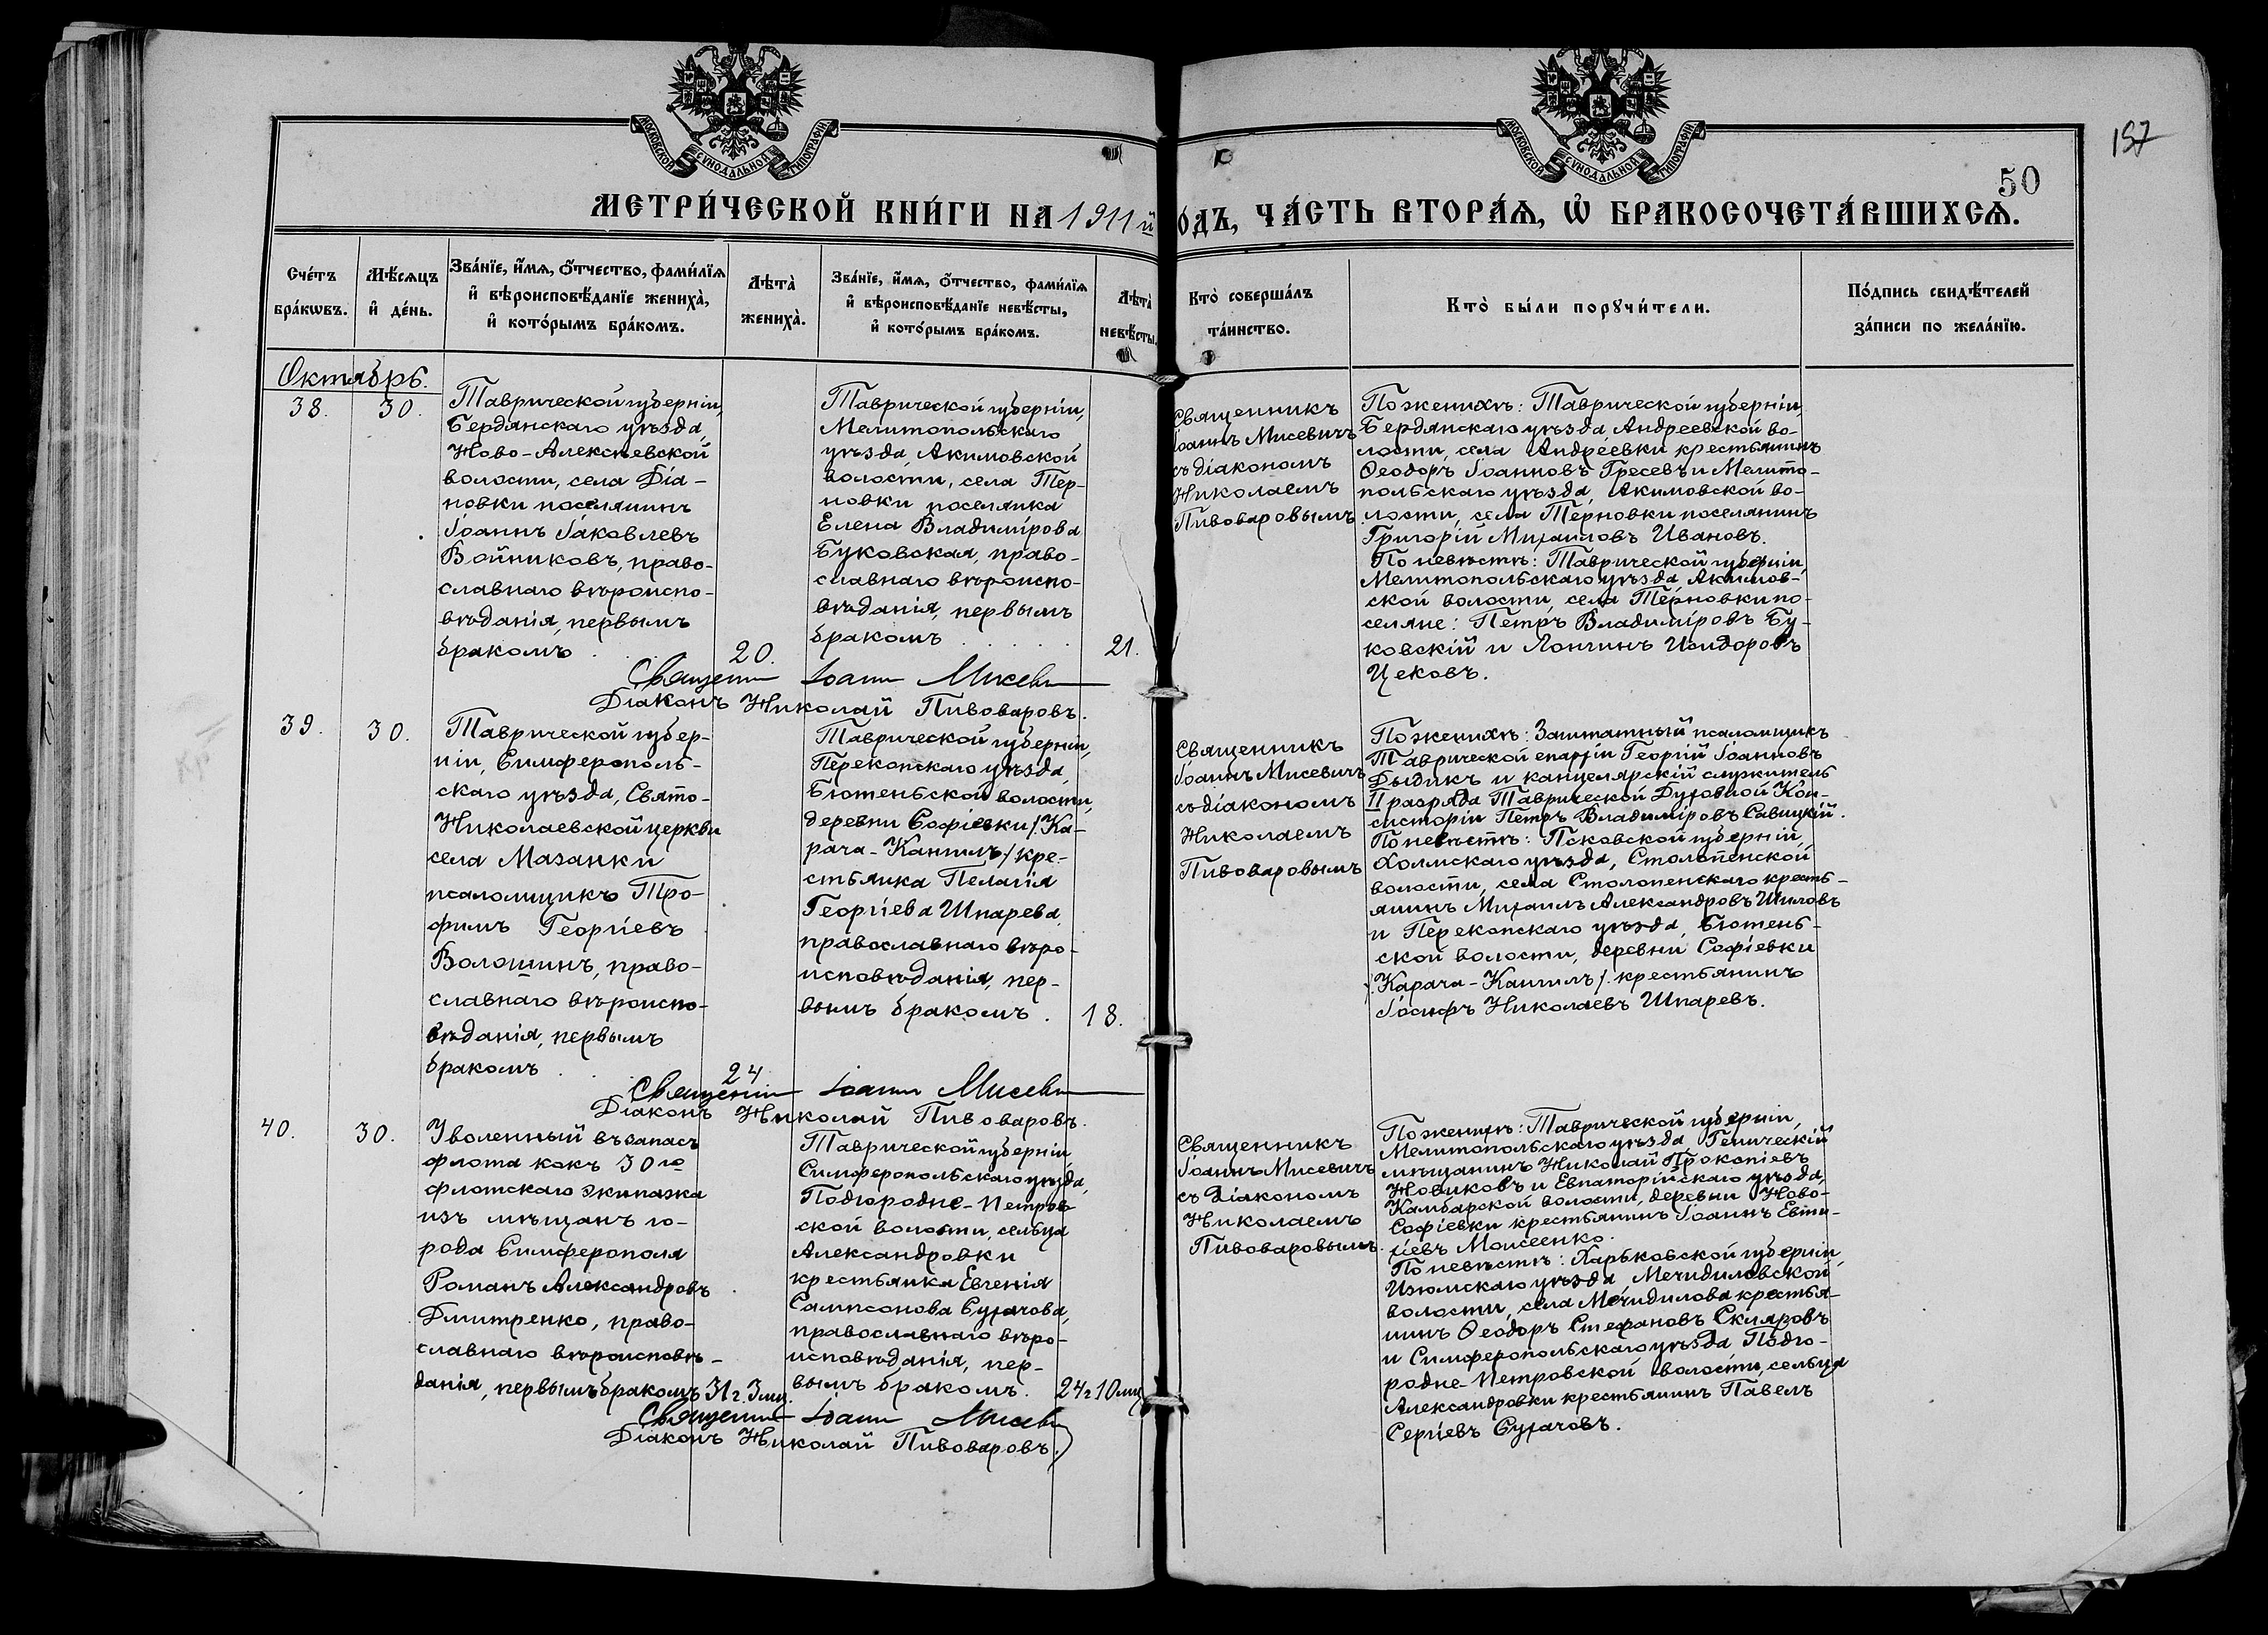 МОСКОВСКОЙ СѴНОДАЛЬНОЙ ТИПОГРАФІИ
МОСКОВСКОЙ СѴНОДАЛЬНОЙ ТИПОГРАФІИ
157
50
МЕТРИ́ЧЕСКОЙ КНИ́ГИ НА 1911й
О́ДЪ, ЧА́СТЬ ВТОРА́Ѧ, Ѽ БРАКОСОЧЕТА́ВШИХСѦ.
Сче́тъ
бра́кѡвъ.
Мѣ́сѧцъ
и҆ де́нь.
Зва́нїе, и҆́мѧ, ѻ҆́тчество, фами́лїѧ
и҆ вѣроисповѣ́данїе жениха̀,
и҆ кото́рымъ бра́комъ.
Лѣта̀
жениха̀.
Зва́нїе, и҆́мѧ, ѻ҆́тчество, фами́лїѧ
и҆ вѣроисповѣ́данїе невѣ́сты,
и҆ кото́рымъ бра́комъ.
Лѣта̀
невѣ́сты.
Кто̀ соверша́лъ
та́инство.
Кто̀ бы́ли порꙋчи́тели.
По́дпись свидѣ́телей
за́писи по жела́нїю.
Октябрь.
38.
30.
Таврической губерніи,
Бердянскаго уѣзда,
Ново-Алексѣевской
волости, села Діа-
новки поселянинъ
Іоаннъ Іаковлевъ
Войниковъ, право-
славнаго вѣроиспо-
вѣданія, первымъ
бракомъ
20.
Таврической губерніи,
Мелитопольскаго
уѣзда, Акимовской
волости, села Тер-
новки поселянка
Елена Владимірова
Буковская, право-
славнаго вѣроиспо-
вѣданія, первымъ
бракомъ
21.
Священникъ
Іоаннъ Мисевичъ
съ діакономъ
Николаемъ
Пивоваровымъ.
По женихѣ: Таврической губерніи
Бердянскаго уѣзда, Андреевской во-
лости, села Андреевки крестьянинъ
Ѳеодоръ Іоанновъ Гресевъ и Мелито-
польскаго уѣзда, Акимовской во-
лости, села Терновки поселянинъ
Григорій Михаиловъ Ивановъ.
По невѣстѣ: Таврической губерніи,
Мелитопольскаго уѣзда, Акимов-
ской волости, села Терновки по-
селяне: Петръ Владиміровъ Бу-
ковскій и Лонгинъ Исидоровъ
Цековъ.
Священник Іоанн Мисевич
Діаконъ Николай Пивоваровъ.
39.
30.
Таврической губер-
ніи, Симферополь-
скаго уѣзда, Свято-
Николаевской церкви
села Мазанки
псаломщикъ Тро-
фимъ Георгіевъ
Волошинъ, право-
славнаго вѣроиспо-
вѣданія, первымъ
бракомъ
24
Таврической губерніи,
Перекопскаго уѣзда,
Бютеньской волости,
деревни Софіевки /: Ка-
рача-Кангилъ:/ кре-
стьянка Пелагія
Георгіева Шпарева,
православнаго вѣро-
исповѣданія, пер-
вымъ бракомъ.
18.
Священникъ
Іоаннъ Мисевичъ
съ діакономъ
Николаемъ
Пивоваровымъ
По женихѣ: Заштатный псаломщикъ
Таврической епархіи Георгій Іоанновъ
Дыдикъ и канцелярскій служитель
II разряда Таврической Духовной Кон-
систоріи Петръ Владиміровъ Савицкій.
По невѣстѣ: Псковской губерніи,
Холмскаго уѣзда, Столопенской
волости, села Столопенскаго кресть-
янинъ Михаилъ Александровъ Шиловъ
и Перекопскаго уѣзда, Бютень-
ской волости, деревни Софіевки
/: Карача-Кангилъ /. крестьянинъ
Іосифъ Николаевъ Шпаревъ.
Священник Іоанн Мисевич
Діаконъ Николай Пивоваровъ.
40.
30.
Уволенный въ запасъ
флота кокъ 30го
флотскаго экипажа
изъ мѣщанъ го-
рода Симферополя
Романъ Александровъ
Дмитренко, право-
славнаго вѣроисповѣ-
данія, первымъ бракомъ
31 г. 3 мц.
Таврической губерніи,
Симферопольскаго уѣзда,
Подгородне-Петров-
ской волости, сельца
Александровки
крестьянка Евгенія
Сампсонова Сухачова,
православнаго вѣро-
исповѣданія, пер-
вымъ бракомъ.
24 г 10 мц
Священникъ
Іоаннъ Мисевичъ
съ Діакономъ
Николаемъ
Пивоваровымъ.
По женихѣ: Таврической губерніи,
Мелитопольскаго уѣзда Геническій
мѣщанинъ Николай Прокопіевъ
Новиковъ и Евпаторійскаго уѣзда,
Камбарской волости, деревни Ново-
Софіевки крестьянинъ Іоаннъ Евти-
хіевъ Моисеенко.
По невѣстѣ: Харьковской губерніи,
Изюмскаго уѣзда, Мечидиловской
волости, села Мечидилова крестья-
нинъ Ѳеодоръ Стефановъ Скляровъ
и Симферопольскаго уѣзда Подго-
родне-Петровской волости, сельца
Александровки крестьянинъ Павелъ
Сергіевъ Сухачовъ.
Священник Іоанн Мисевич
Діаконъ Николай Пивоваровъ.